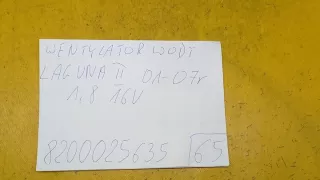 WENTYLATOR WODY
LAGUNA II 01-07r
1,8 16V
8200025635 65